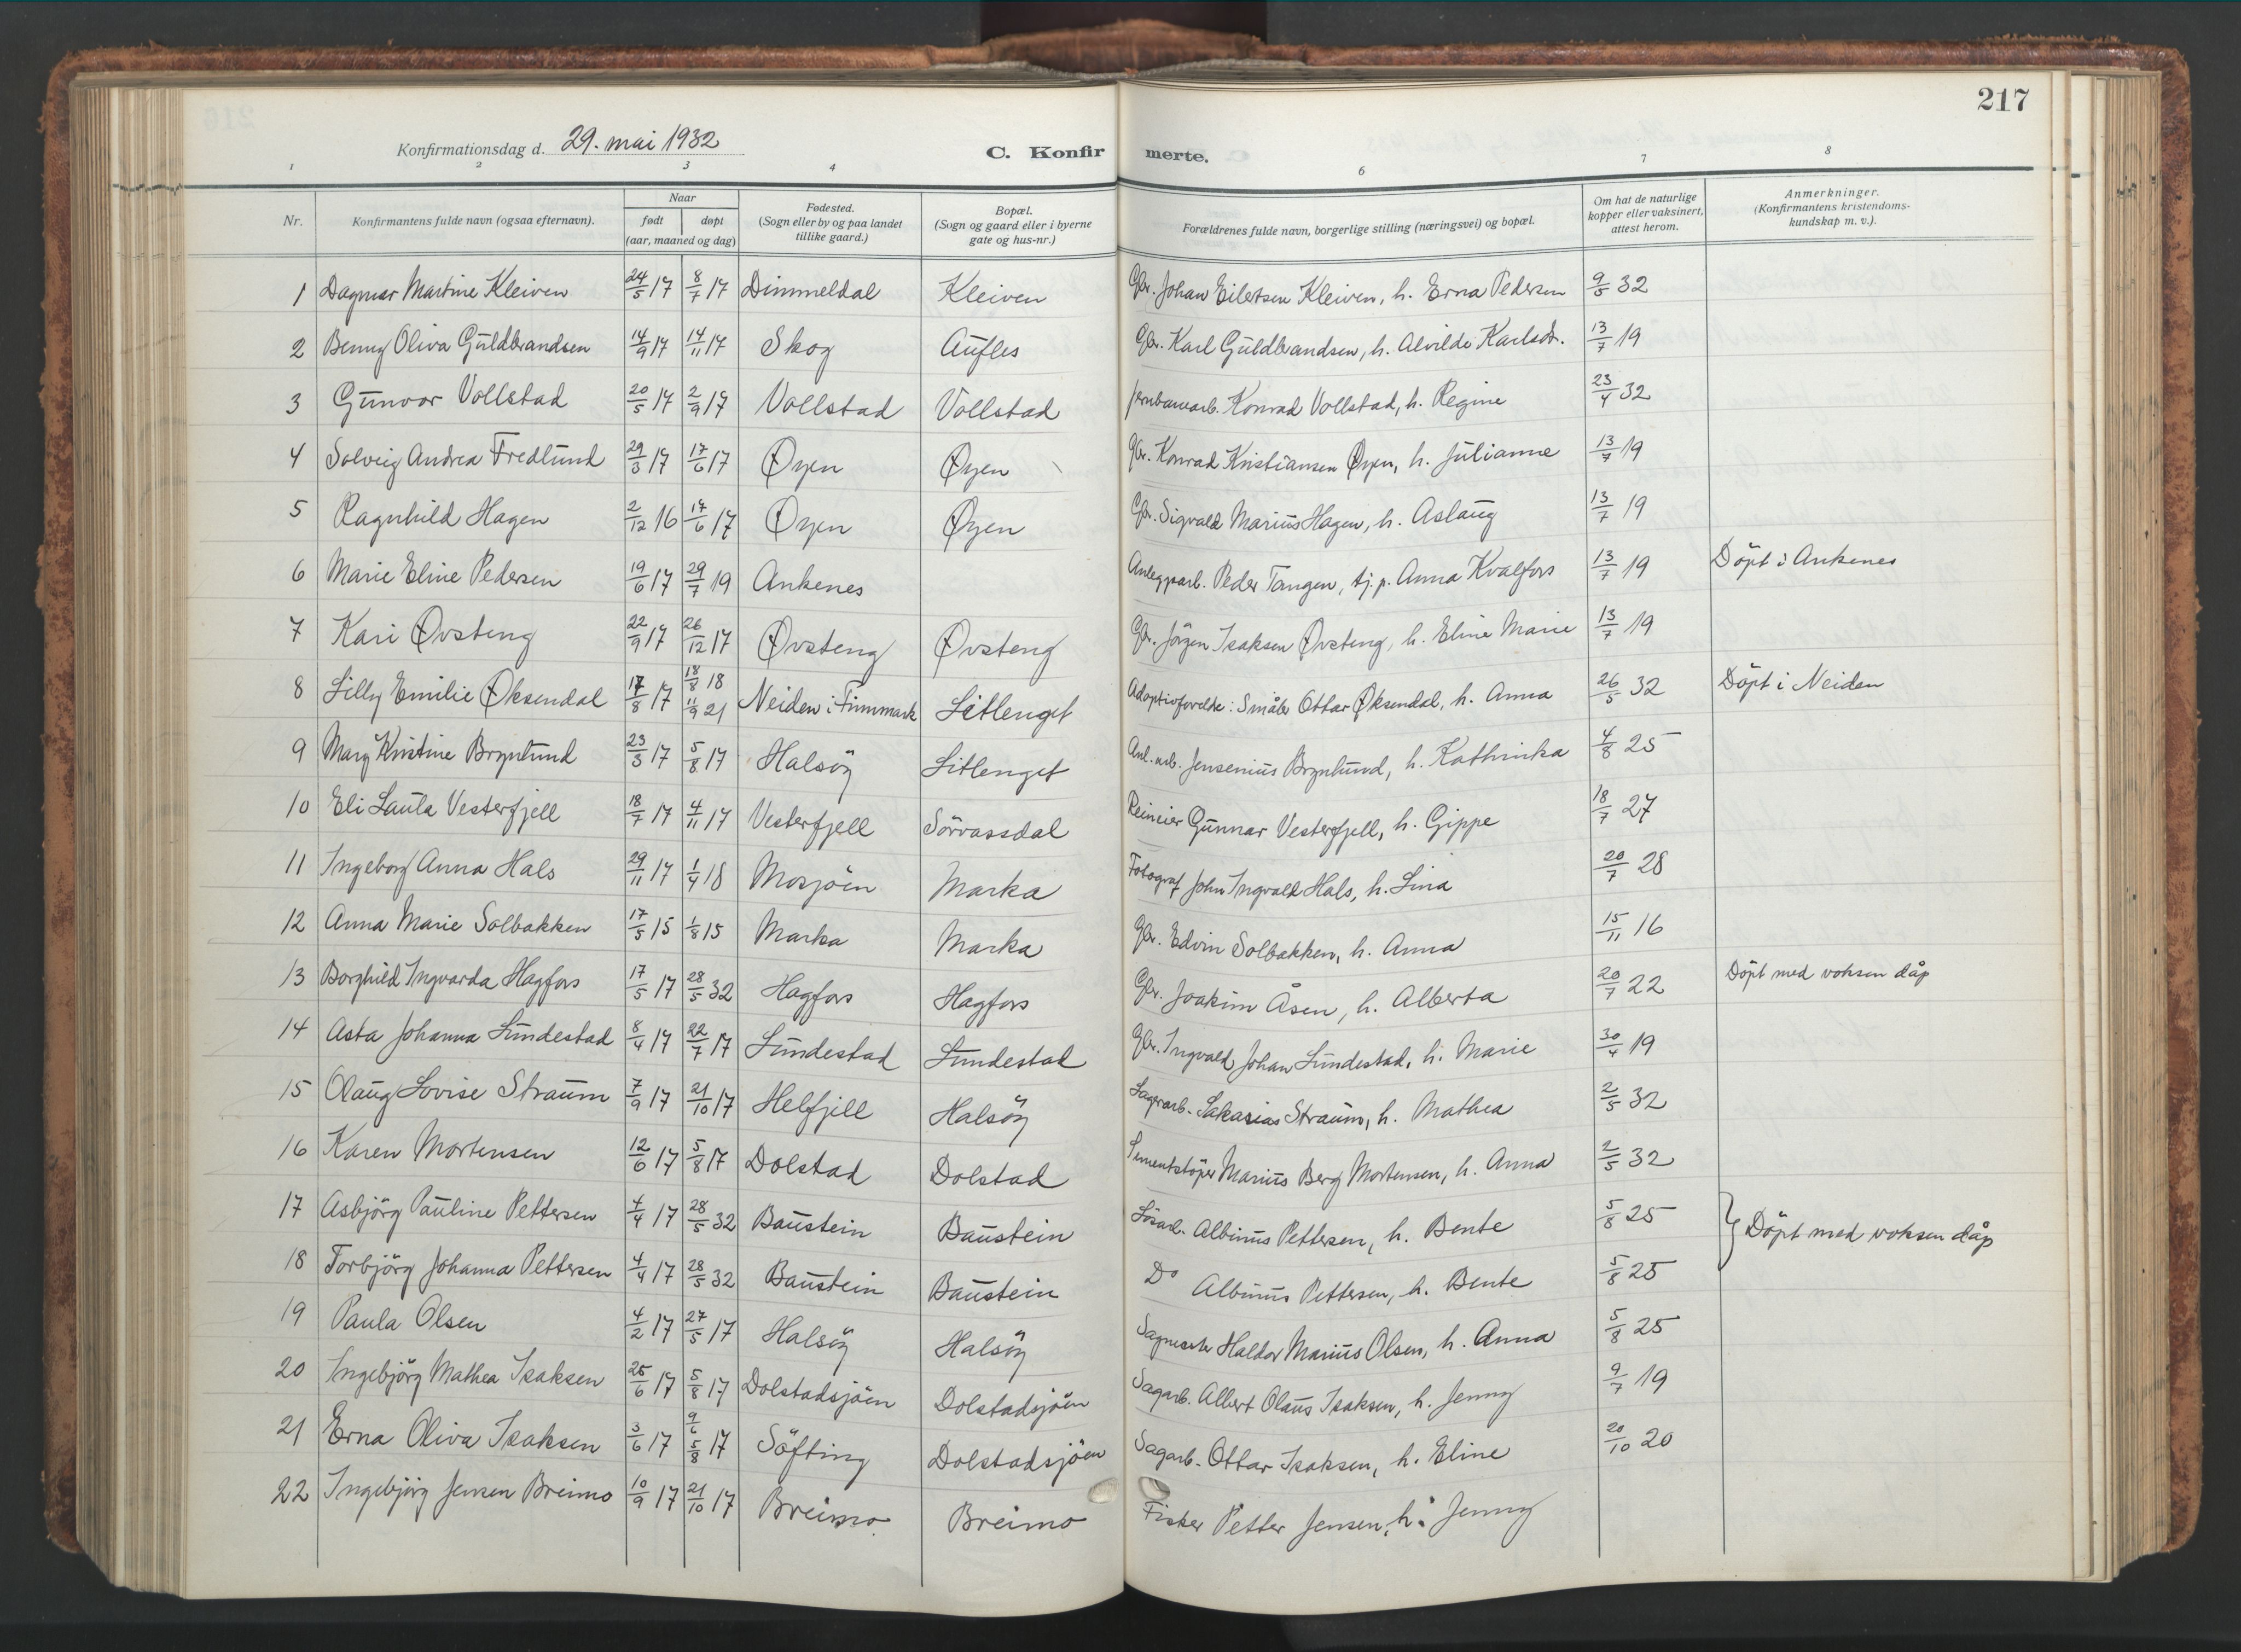 217
Konfirmationsdag d. 29. mai 1932
C. Konfir merte.
1 2 3 4 6 7 8
Nr. Konfirmantens fulde navn (ogsaa efternavn). Naar født døpt (aar, maaned og dag) Fødested. (Sogn eller by og paa landet tillike gaard.) Bopæl. (Sogn og gaard eller i byerne gate og hus-nr.) Forældrenes fulde navn, borgerlige stilling (næringsvei) og bopæl. Om hat de naturlige kopper eller vaksinert, attest herom. Anmerkninger. (Konfirmantens kristendoms-kundskap m. v.).
1 Dagmar Martine Kleiven 24/5 17 8/7 17 Dimmeldal Kleiven Gbr. Johan Eilertsen Kleiven, h. Erna Pedersen 9/5 32
2 Benny Oliva Guldbrandsen 14/9 17 14/11 17 Skog Aufles Gbr. Karl Guldbrandsen, h. Alvilde Karlsdr. 13/7 19
3 Gunvor Vollstad 20/5 17 2/9 17 Vollstad Vollstad Jernbanearb. Konrad Vollstad, h. Regine 23/4 32
4 Solveig Andrea Fredlund 29/3 17 17/6 17 Øyen Øyen Gbr. Konrad Kristiansen Øyen, h. Julianne 13/7 19
5 Ragnhild Hagen 2/12 16 17/6 17 Øyen Øyen Gbr. Sigvald Marius Hagen, h. Aslaug 13/7 19
6 Marie Eline Pedersen 19/6 17 29/7 19 Ankenes Anleggsarb. Peder Tangen, tj. p. Anna Kvalfors 13/7 19 Döpt i Ankenes
7 Kari Øvsteng 22/9 17 26/12 17 Øvsteng Øvsteng Gbr. Jörgen Isaksen Øvsteng, h. Eline Marie 13/7 19
8 Lilly Emilie Øksendal 17/8 17 18/8 18 11/9 21 Neiden i Finnmark Litlenget Adoptivforeldre: Småbr Ottar Øksendal, h. Anna 26/5 32 Döpt i Neiden
9 Mary Kristine Brynlund 23/3 17 5/8 17 Halsöy Litlenget Anl.arb. Jensenius Brynlund, h. Kathinka 4/8 25
10 Eli Laula Vesterfjell 18/7 17 4/11 17 Vesterfjell Sörvassdal Reineier Gunnar Vesterfjell, h. Gippe 18/7 27
11 Ingeborg Anna Hals 29/11 17 1/4 18 Mosjöen Marka Fotograf John Ingvald Hals, h. Lina 20/7 28
12 Anna Marie Solbakken 17/5 15 1/8 15 Marka Marka Gbr. Edvin Solbakken, h. Anna 15/11 16
13 Borghild Ingvarda Hagfors 17/5 17 28/5 32 Hagfors Hagfors Gbr. Joakim Åsen, h. Alberta 20/7 22 Döpt med voksen dåp
14 Asta Johanna Lundestad 8/4 17 22/7 17 Lundestad Lundestad Gbr. Ingvald Johan Lundestad, h. Marie 30/4 19
15 Olaug Lovise Straum 7/9 17 21/10 17 Helfjell Halsöy Lagerarb. Sakarias Straum, h. Mathea 2/5 32
16 Karen Mortensen 12/6 17 5/8 17 Dolstad Dolstad Sementstöper Marius Berg Mortensen, h. Anna 2/5 32
17 Asbjörg Pauline Pettersen 4/4 17 28/5 32 Baustein Baustein Lösarb. Albinus Pettersen, h. Bente 5/8 25 Döpt med voksen dåp
18 Torbjörg Johanna Pettersen 4/4 17 28/5 32 Baustein Baustein Do Albinus Pettersen, h. Bente 5/8 25
19 Paula Olsen 4/2 17 27/5 17 Halsöy Halsöy Sagmester Haldor Marius Olsen, h. Anna 5/8 25
20 Ingebjörg Mathea Isaksen 25/6 17 5/8 17 Dolstadsjöen Dolstadsjöen Sagarb. Albert Olaus Isaksen, h. Jenny 9/7 19
21 Erna Oliva Isaksen 3/6 17 9/6 5/8 17 Söfting Dolstadsjöen Sagarb. Ottar Isaksen, h. Eline 20/10 20
22 Ingebjörg Jensen Breimo 10/9 17 21/10 17 Breimo Breimo Fisker Petter Jensen, h. Jenny